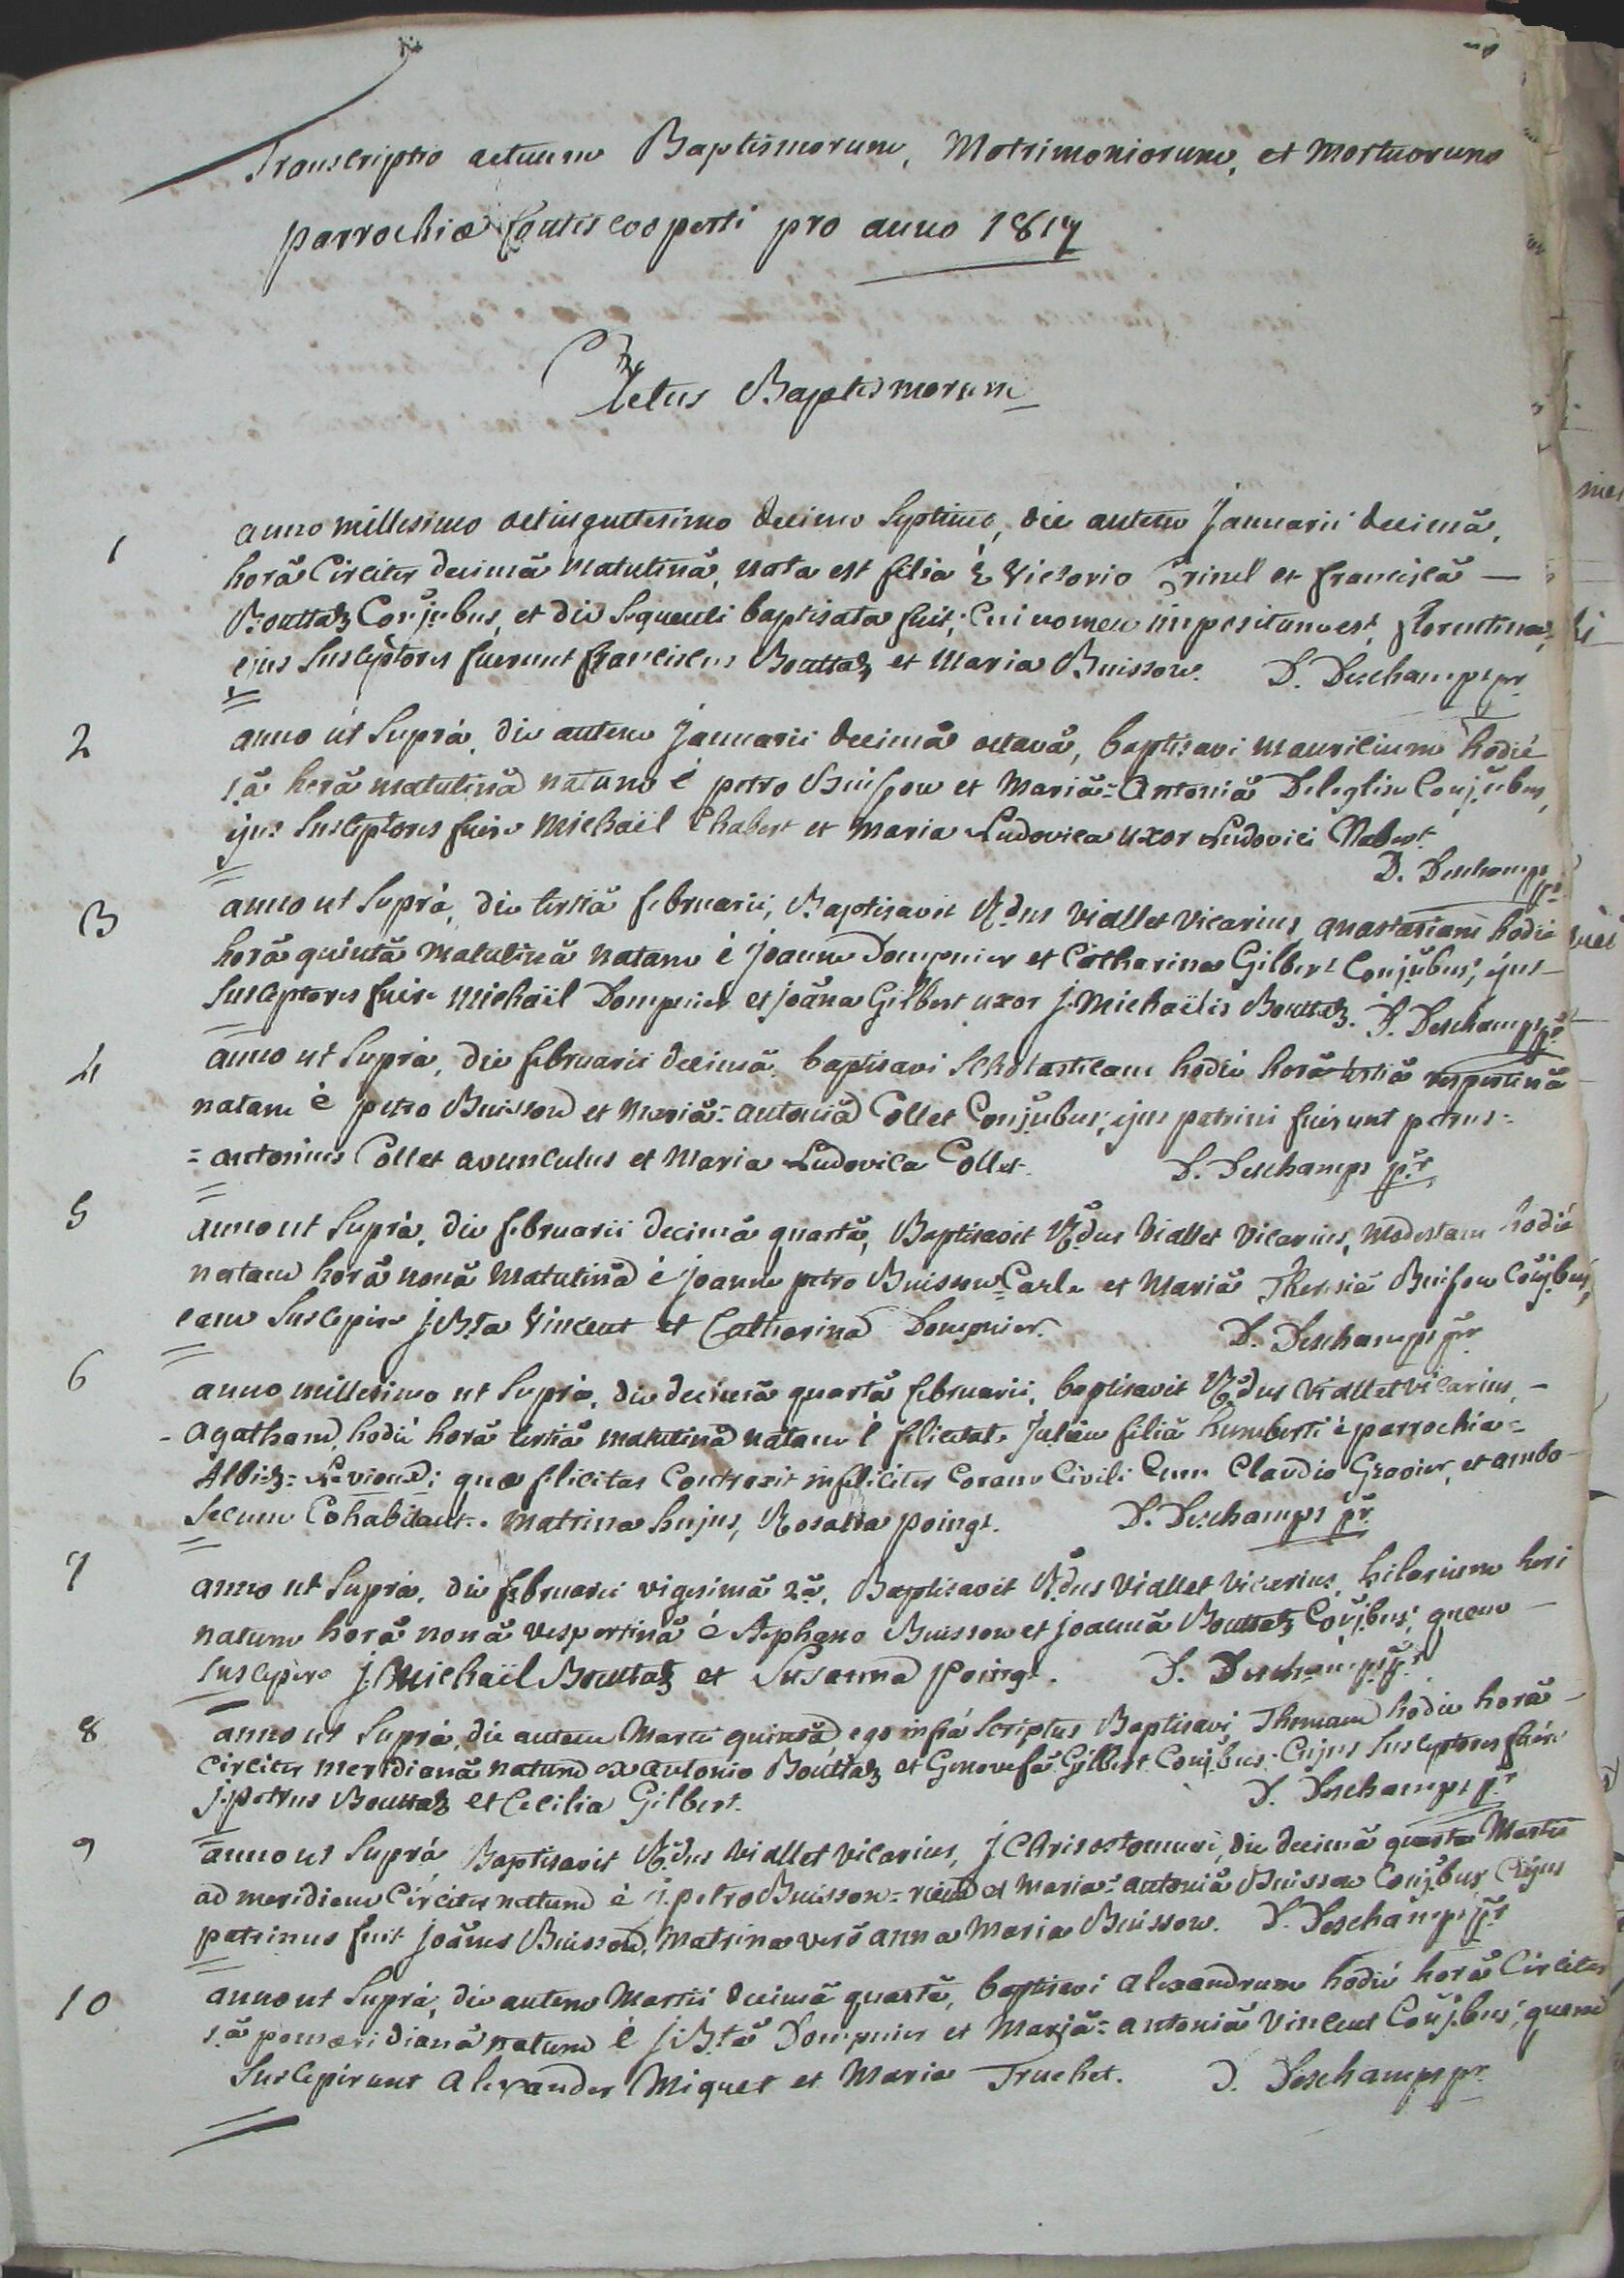 Transcriptio actuum Baptismorum, Matrimoniorum, et Mortuorum
parrochiæ fontiscooperti pro anno 1817
Actus Baptismorum
1 anno millesimo octinguntesimo decimo septimo, die autem Januarii decimâ,
horâ circiter decimâ matutinâ, nata est filia è Victorio Grinel et franciscâ —
Bouttaz Conjubus, et die sequenti baptisata fuit; cui nomen impositum est, florentina,
ejus susceptores fuerunt franciscus Bouttaz et Maria Buisson. D. Deschamps pr
2 anno ut suprà, die autem Januarii decimâ octavâ, baptisavi mauricium hodiè
1.â horâ matutinâ natum è petro Buisson et Mariâ=Antoniâ Deleglise Conjubus,
ejus susceptores fuere Michaël Chabert et Maria Ludovica uxor Ludovici Nabert.
D. Deschamps pr
3 anno ut suprà, die tertiâ februarii, Baptisavit R.dus Viallet vicarius, anastasiam hodie
horâ quintâ matutinâ natam è joanne Dompnier et Catharina Gilbert Conjubus; ejus
susceptores fuere Michaël Dompnier et joãna Gilbert uxor j. Michaëlis Bouttaz. D. Deschamps pr
4 anno ut suprà, die februarii decimâ baptisavi scholasticam hodiè horâ tertiâ vespertinâ
natam è petro Buisson et Mariâ=antoniâ Collet Conjubus; ejus patrini fuerunt petrus=
=antonius Collet avunculus et Maria Ludovica Collet. D. Deschamps pr
5 anno ut suprà, die februarii decimâ quartâ, Baptisavit R.dus Viallet vicarius, Modestam hodiè
natam horâ nonâ matutinâ è joanne petro Buisson=Carle et Mariâ Theresiâ Buisson Coñjbus,
eam suscepere j.B.ta Vincent et Catharina Dompnier. D. Deschamps pr
6 anno millesimo ut suprà, die decimâ quartâ februarii, baptisavit R.dus Viallet vicarius, —
- Agatham, hodiè horâ tertiâ matutinâ natam è felicitate Julien filiâ humberti è parrochia=
Albiez=Leviond; quæ felicitas contraxit infeliciter coram civili cum Claudio Gravier, et ambo
secum Cohabitant. Matrina hujus, Rosalia poingt. D. Deschamps pr
7 anno ut suprà, die februarii vigesimâ 2.â, Baptisavit R.dus Viallet vicarius, hilarium heri
natum horâ nonâ vespertinâ è stephano Buisson et joannâ Bouttaz Coñjbus; quem —
suscepere j. Michaël Bouttaz et Susanna poingt. D. Deschamps pr
8 anno ut suprà, die autem Martii quintâ, ego infrà scriptus Baptisavi Thomam hodie horâ —
circiter meridianâ natum ex antonio Bouttaz et Genovefâ Gilbert Conjbus. Cujus susceptores fuere
j. petrus Bouttaz et Cecilia Gilbert. D. Deschamps pr
9 anno ut suprà, Baptisavit R.dus Viallet vicarius, j Chrisostomum, die decimâ quarta Martii
ad meridiem circiter natum è j. petro Buisson= et Maria=antoniâ Buisson Conjbus Cujus
patrinus fuit joãnes Buisson, Matrina verò anna Maria Buisson. D. Deschamps pr
10 anno ut suprà, die autem Martii decimâ quartâ, baptisavi alexandrum hodiè horâ circiter
1.â pomæridianâ natum è j.B.tâ Dompnier et Mariâ=antoniâ Vincent Coñjbus; quem
susceperunt alexander Miquet et Maria Truchet. D. Deschamps pr